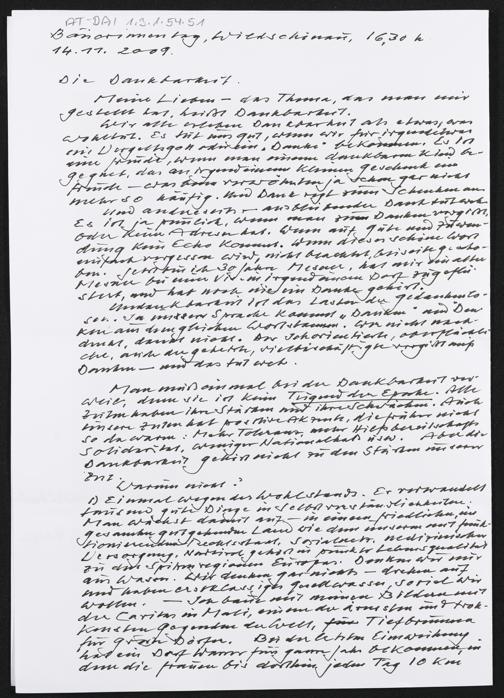 AT-DAI 1.3.1.54.51
Bäuerinnentag, Wildschönau, 16,30 h
14.11. 2009.
Die Dankbarkeit.
Meine Lieben – das Thema, das man mir
gestellt hat, heißt Dankbarkeit.
Wir alle erleben Dankbarkeit als etwas, was
wohltut. Es tut uns gut, wenn wir für irgendetwas
ein Vergeltsgott oder ein „Danke" bekommen. Es ist
eine Freude, wenn man einem dankbaren Kind be-
gegnet, das an irgendeinem kleinen Geschenk eine
Freude – was bei verwöhnten ja schon gar nicht
mehr so häufig. Und Dank regt zum Schenken an.
Und andererseits – ausbleibender Dank tut weh.
Es ist ja peinlich, wenn man zum Danken vergißt,
oder keine Adresse hat. Wenn auf Güte und Zuwen-
dung kein Echo kommt. Wenn dieses schöne Wort
einfach vergessen wird, nicht beachtet, beiseite gescho-
ben. Jetzt bin ich 30 Jahre Mesner, hat mir ein alter
Mesner bei einer in irgendeinem Dorf zugeflü-
stert, und hab noch nie ein Danke gehört.
Undankbarkeit ist das Laster der Gedankenlo-
sen. In unserer Sprache kommt „Danken" und Den-
ken aus dem gleichen Wortstamm. Wer nicht nach-
denkt, dankt nicht. Der oberflächli-
che, auch der gehetzte, vielbeschäftigte vergißt aufs
Danken – und das tut weh.
Man muß einmal bei der Dankbarkeit ver-
weilen, denn sie ist keine Tugend der Epoche. Alle
Zeiten haben ihre Stärken und ihre Schwächen. Auch
unsere Zeiten hat positive Akzente, die früher nicht
so da waren: Mehr Toleranz, mehr Hilfsbereitschaft,
Solidarität, weniger Nationalhaß usw. Aber die
Dankbarkeit gehört nicht zu den Stärken unserer
Zeit.
Warum nicht?
1) Einmal wegen des Wohlstands. Er verwandelt
tausend gute Dinge in Selbstverständlichkeiten.
Man wächst damit auf – in einem friedlichen, im
gesamten gutgehenden Land wie dem unseren mit funk-
tionierendem Rechtsstaat, Sozialnetz, medizinischer
Versorgung, Nordtirol gehört in punkto Lebensqualität
zu den Spitzenregionen Europas. Danken wir nur
ans Wasser. Wir denken gar nicht – drehen auf
und haben erstklassiges Quellwasser, soviel wir
wollen. – Ich baue mit meinen Bildern mit
der Caritas in Mali, einem der ärmsten und trok-
kensten Gegenden der Welt, Tiefbrunnen
für große Dörfer. Bei der letzten Einweihung
hat ein Dorf Wasser fürs ganze Jahr bekommen, in
dem die Frauen bis dorthin jeden Tag 10 km